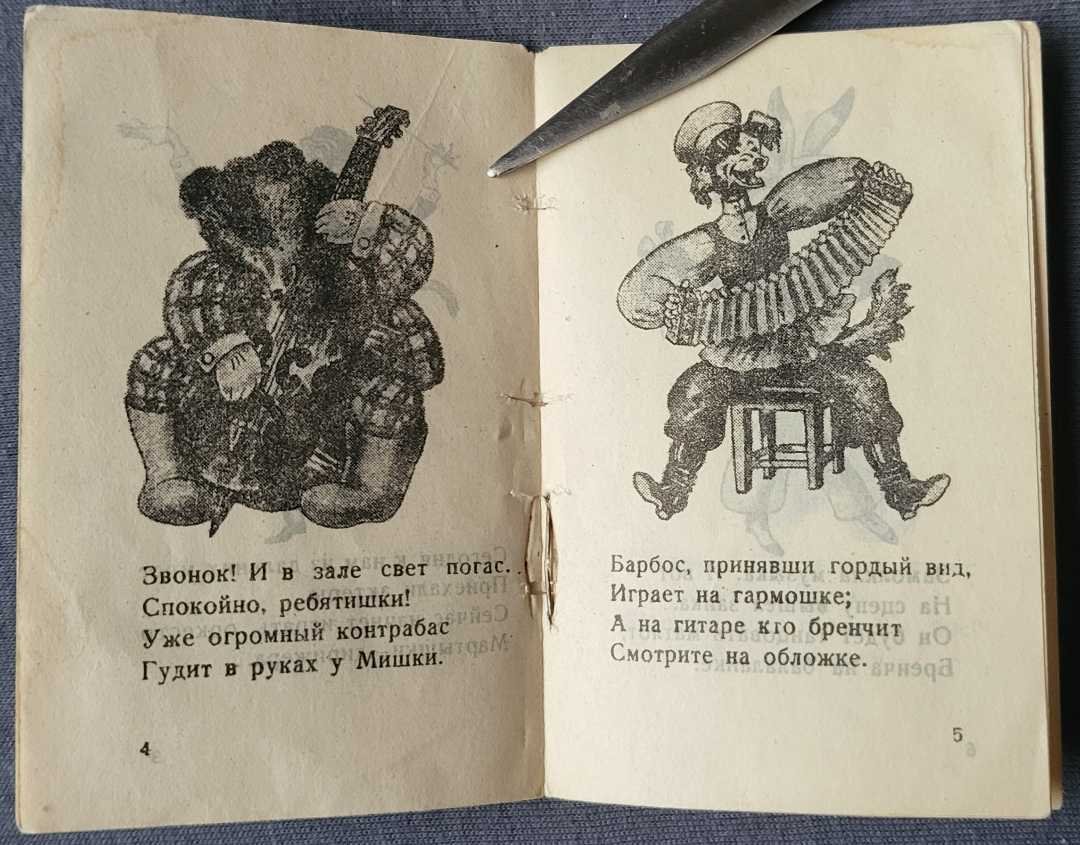 Звонок! И в зале свет погас..
Спокойно, ребятишки!
Уже огромный контрабас
Гудит в руках у Мишки.
4
Барбос, принявши гордый вид,
Играет на гармошке;
А на гитаре кто бренчит
Смотрите на обложке.
5